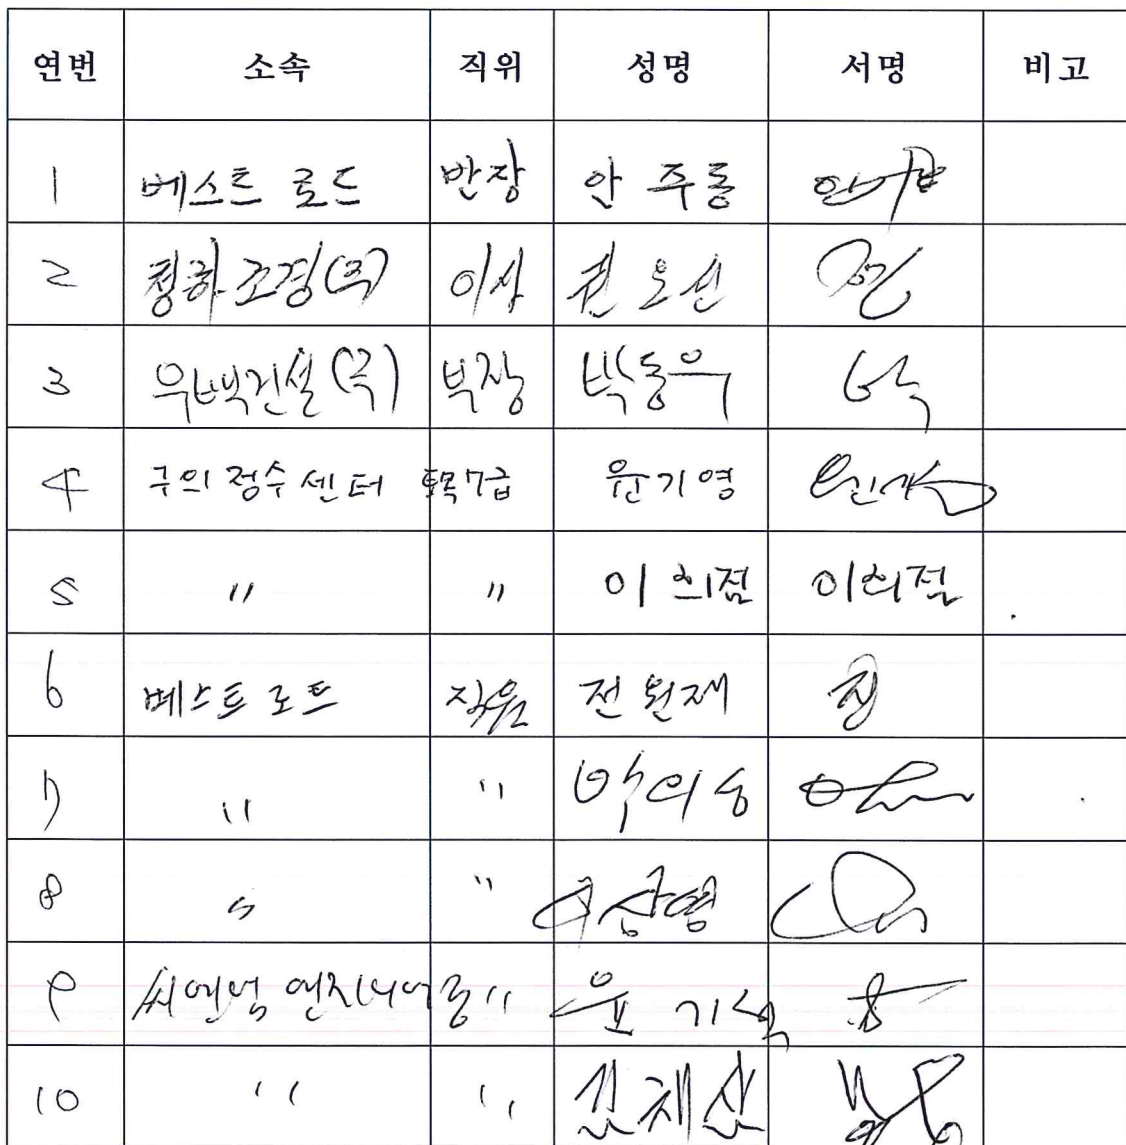 연번 소속 직위 성명 서명 비고
1 베스트 로드 반장 안 주동
2 청하조경(주) 이사 권오선 권
3 우백건설(주) 부장 박동우 박
4 구의정수센터 토목7급 윤기영
5 " " 이희점 이희점
6 베스트로드 직원 전원재 전
7 " " 박의송
8 " "
9 씨엔엠 엔지니어링 " 윤기석
10 " " 김채산